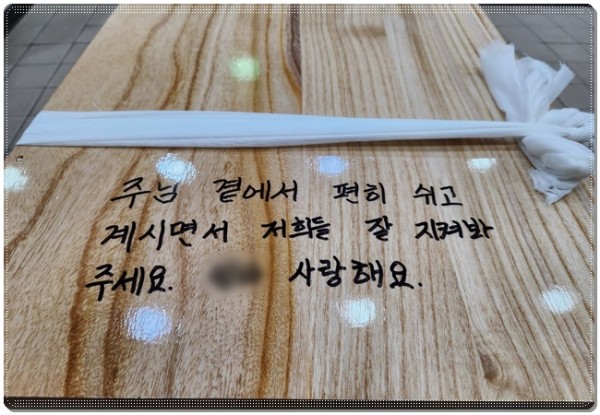 주님 곁에서 편히 쉬고
계시면서 저희들 잘 지켜봐
주세요. 사랑해요.